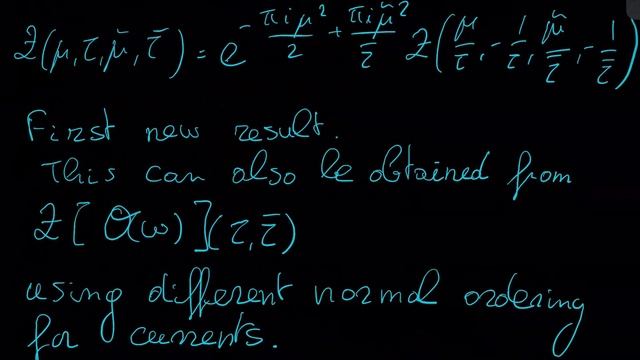 Z(μ, τ, μ̃, τ̄) = e^{-πiμ²/2 + πiμ̃²/τ̄} Z(μ/τ, -1/τ, μ̃/τ̄, -1/τ̄)
First new result.
This can also be obtained from
Z[O(ω)](τ, τ̄)
using different normal ordering
for currents.